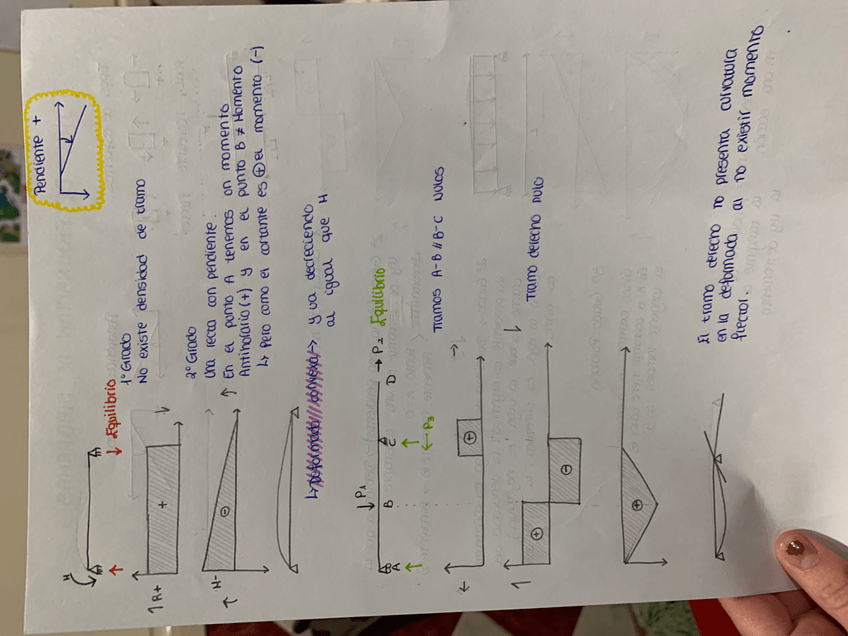 Pendiente +
H
Equilibrio
1º Grado
No existe densidad de tramo
R+
+
2º Grado
Una recta con pendiente.
En el punto A tenemos un momento
Antihorario (+) y en el punto B ≠ Momento
↳ Pero como el cortante es ⊕ el momento (-)
H-
⊖
↳ Deformada convexa → y va decreciendo
al igual que M
P1
P2 Equilibrio
A B C D
P3
Tramos A-B // B-C nulos
⊕
Tramo derecho nulo
⊕
⊖
⊕
El tramo derecho no presenta curvatura
en la deformada al no existir momento
flector.